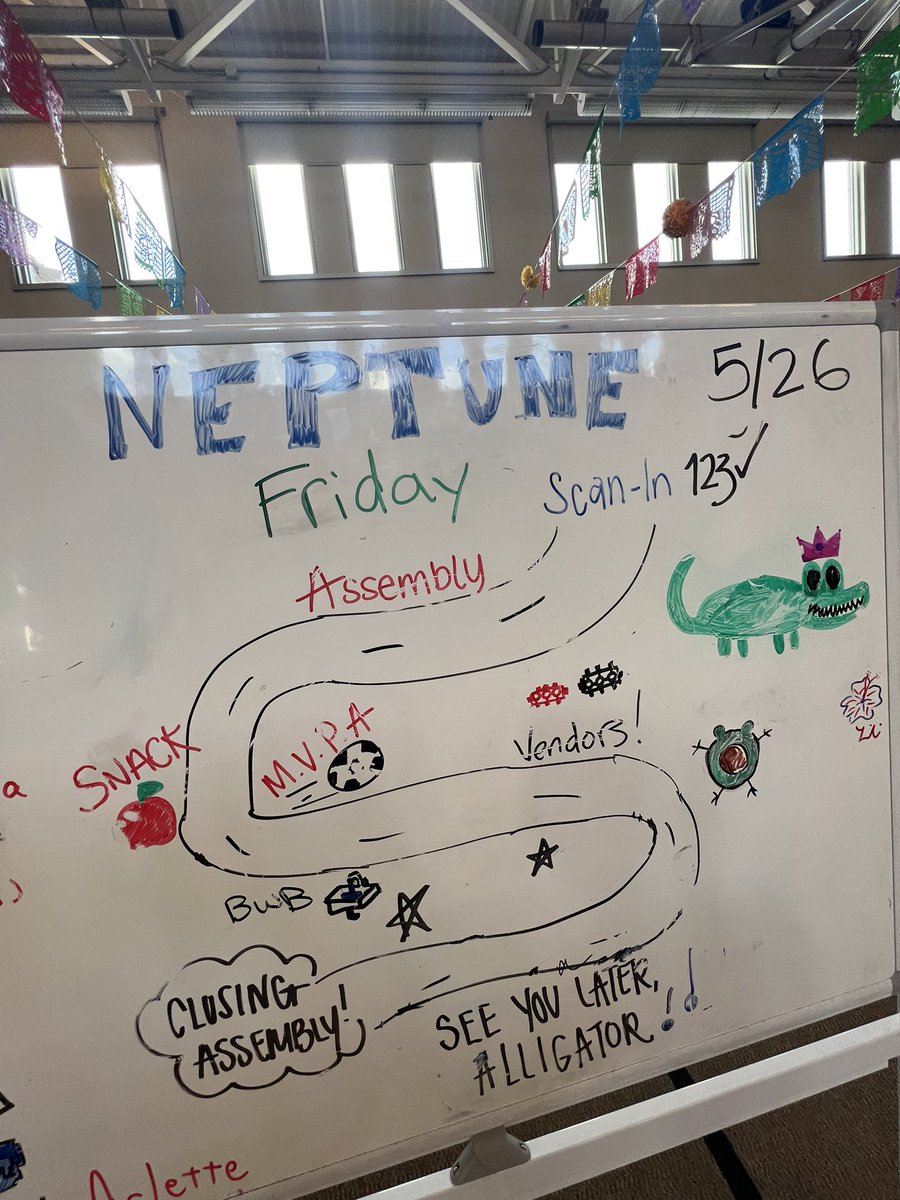 NEPTUNE 5/26
Friday
Scan-In 123
Assembly
SNACK
M.V.P.A
Vendors!
BWB
CLOSING
ASSEMBLY!
SEE YOU LATER,
ALLIGATOR!!
Arlette